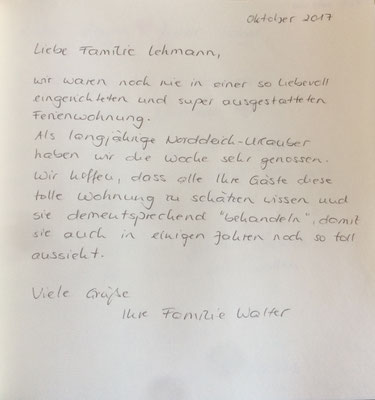 Oktober 2017
Liebe Familie Lehmann,
wir waren noch nie in einer so liebevoll
eingerichteten und super ausgestatteten
Ferienwohnung.
Als langjährige Norddeich-Urlauber
haben wir die Woche sehr genossen.
Wir hoffen, dass alle Ihre Gäste diese
tolle Wohnung zu schätzen wissen und
sie dementsprechend "behandeln", damit
sie auch in einigen Jahren noch so toll
aussieht.
Viele Grüße
Ihre Familie Walter